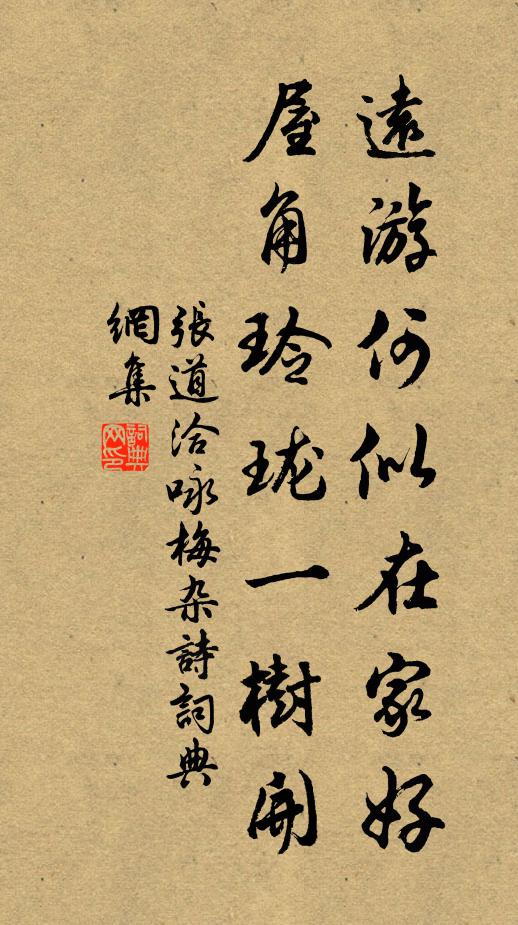 遠游何似在家好
屋角玲珑一樹開
張道洽咏梅杂詩詞典
網集
詞典
网印